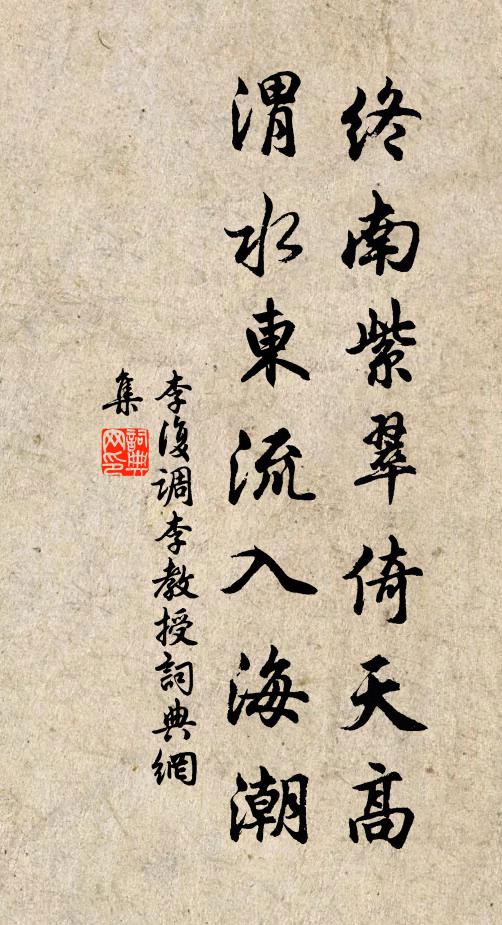 終南紫翠倚天高
渭水東流入海潮
李復調李教授詞典網
集
詞典網印